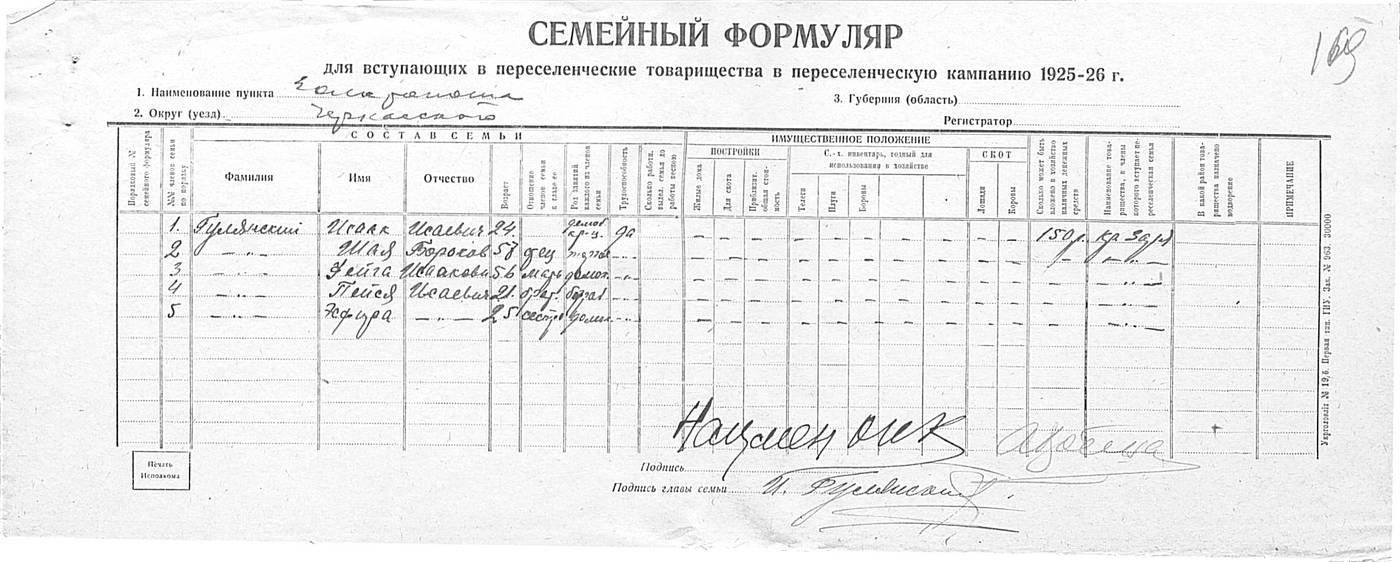 169
СЕМЕЙНЫЙ ФОРМУЛЯР
для вступающих в переселенческие товарищества в переселенческую кампанию 1925-26 г.
1. Наименование пункта Золотоноша
3. Губерния (область)
2. Округ (уезд) Черкасского
Регистратор
Порядковый № семейного формуляра
№№ членов семьи по порядку
СОСТАВ СЕМЬИ
Фамилия
Имя
Отчество
Возраст
Отношение членов семьи к главе ее
Род занятий каждого из членов семьи
Трудоспособность
Сколько работн. выдел. семья до работы весною
ИМУЩЕСТВЕННОЕ ПОЛОЖЕНИЕ
ПОСТРОЙКИ
Жилые дома
Для скота
Приблизит. общая стоимость
С.-х. инвентарь, годный для использования в хозяйстве
Телеги
Плуги
Бороны
СКОТ
Лошади
Коровы
Сколько может быть вложено в хозяйство наличных денежных средств
Наименование товарищества, в члены которого вступает переселенческая семья
В какой район товарищества назначено водворение
ПРИМЕЧАНИЕ
1. Гулянский Исаак Исаевич 24. демоб кр-ц. да – – – – – – – – – – 150 р. Кр Заря
2 –"– Шая Борохов 57 отец –"– – – – – – – – – – – – –"–
3 –"– Фейга Исаакович 56 мать домох. –"– – – – – – – – – – – – –"–
4 –"– Пейся Исаевич 21. брат –"– – – – – – – – – – – – –"–
5 –"– Эсфира –"– 25 сестра домох –"– – – – – – – – – – – – –"–
Нацмен ОИК
Печать Исполкома
Подпись
Подпись главы семьи И. Гулянский
Укрголовліт № 19, б. Первая тип. ГИУ. Зак. № 963. 30000